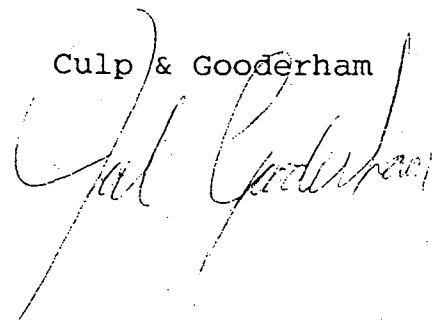 Culp & Gooderham
Gooderham